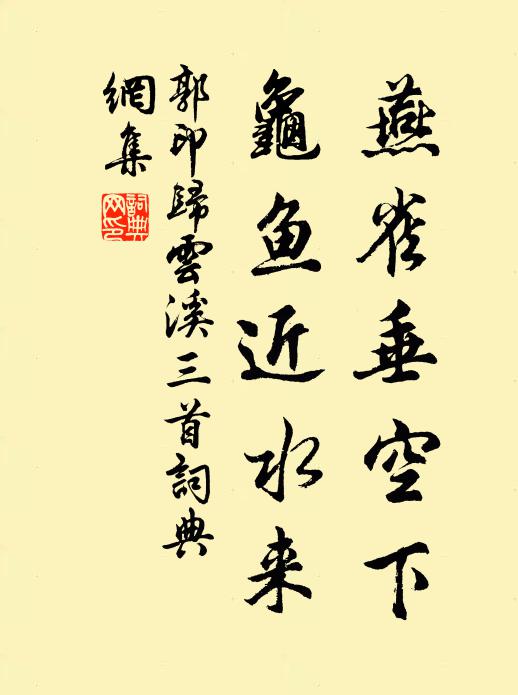 燕雀垂空下
龜鱼近水来
郭印歸雲溪三首詞典
網集
詞典网印